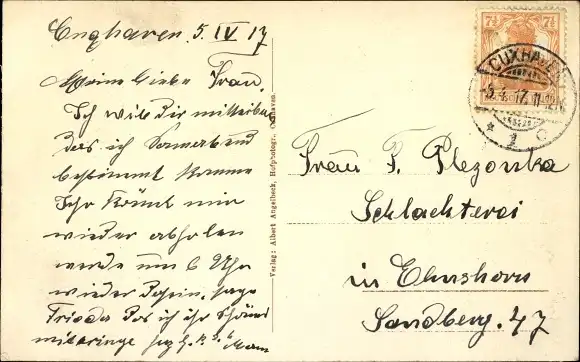 Cuxhaven, 5. IV 17
Meine liebe Frau,
Ich will Dir mitteilen
das ich Sonnabend
bestimmt komme
Ihr könnt mir
wieder abholen
werde um 6 Uhr
wieder
Frieda das ich ihr
mitbringe
Verlag: Albert Angelbeck, Hofphotogr. Cuxhaven.
7½ 7½
CUXHAVEN
5.4.17.11-12V.
* 1 c
Frau F. Plezonka
Schlachterei
in Elmshorn
Sandberg. 47